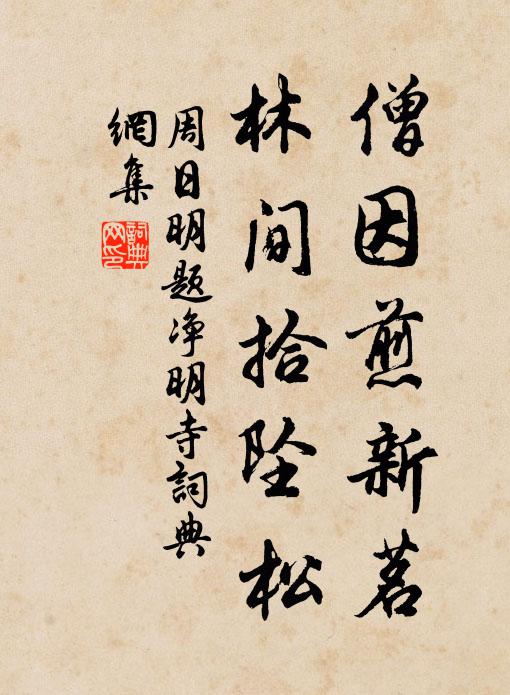 僧因煎新茗
林间拾坠松
周日明题净明寺詞典
網集
詞典
网印